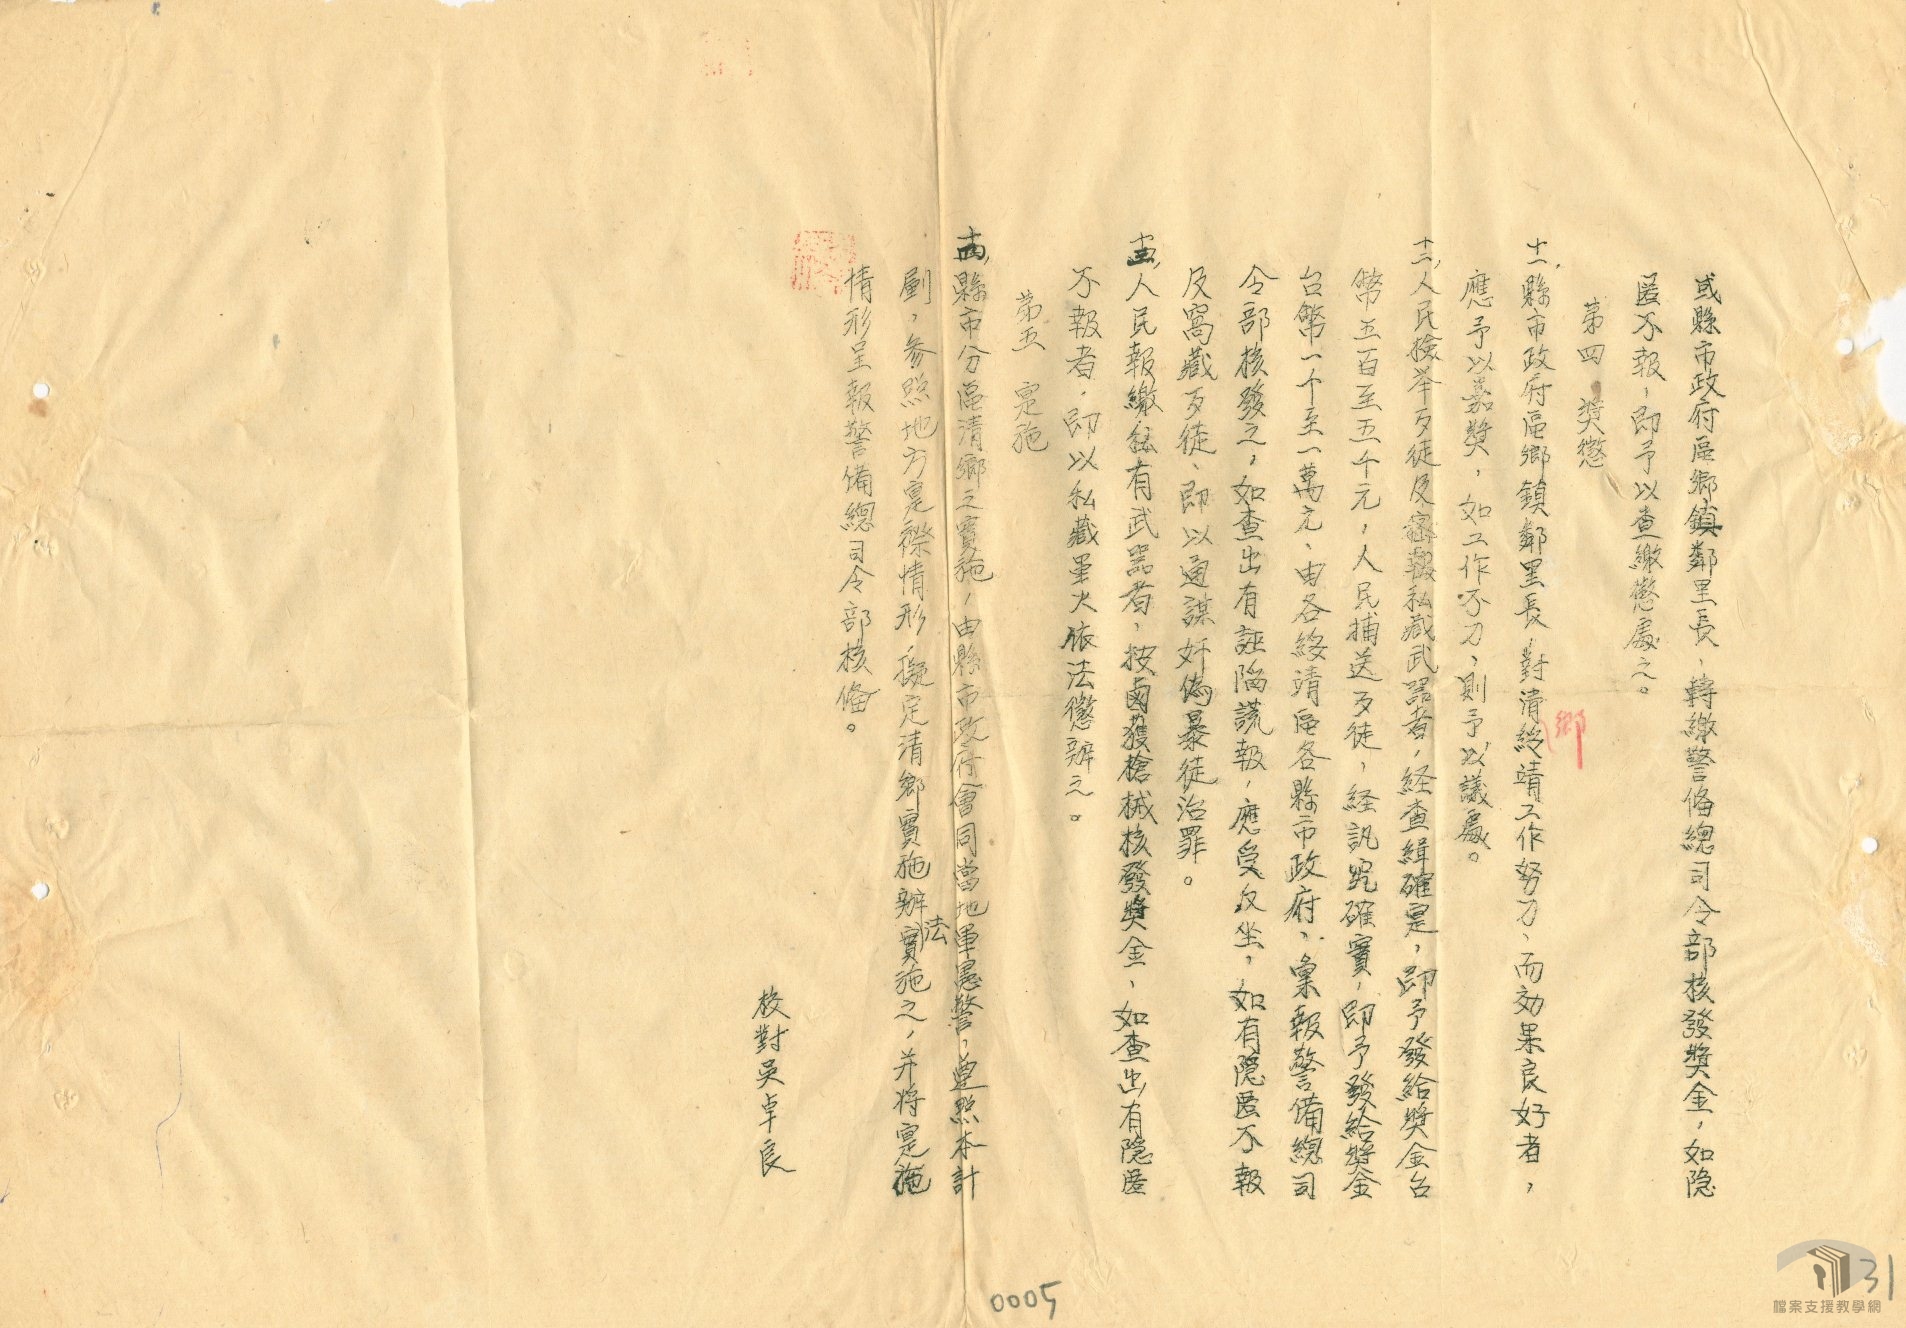 或縣市政府區鄉鎮鄰里長、轉繳警俻總司令部核發獎金，如隐
匿不報，即予以查繳懲處之。
第四　奖懲
十一、縣市政府區鄉鎮鄰里長，對清綏靖工作努力、而効果良好者，
鄉
應予以嘉獎，如工作不力、則予以議處。
十二、人民檢举歹徒及密報私藏武器者，経查緝確寔，即予發給獎金台
幣五百至五千元，人民捕送歹徒，経訊究確實，即予發給獎金
台幣一千至一萬元、由各綏靖區各縣市政府，彙報警備總司
令部核發之，如查出有誣陷謊報，應受反坐，如有隐匿不報
及窩藏歹徒、即以通謀奸偽暴徒治罪。
人民報繳私有武器者，按鹵獲槍械核發獎金，如查出有隐匿
不報者，即以私藏軍火依法懲辦之。
第五　寔施
縣市分區清鄉之實施，由縣市政府會同當地軍憲警，遵照本計
劃，参照地方寔際情形，擬定清鄉實施辦法實施之，并將寔施
情形呈報警備總司令部核俻。
校對吳卓良
0005
31
檔案支援教學網